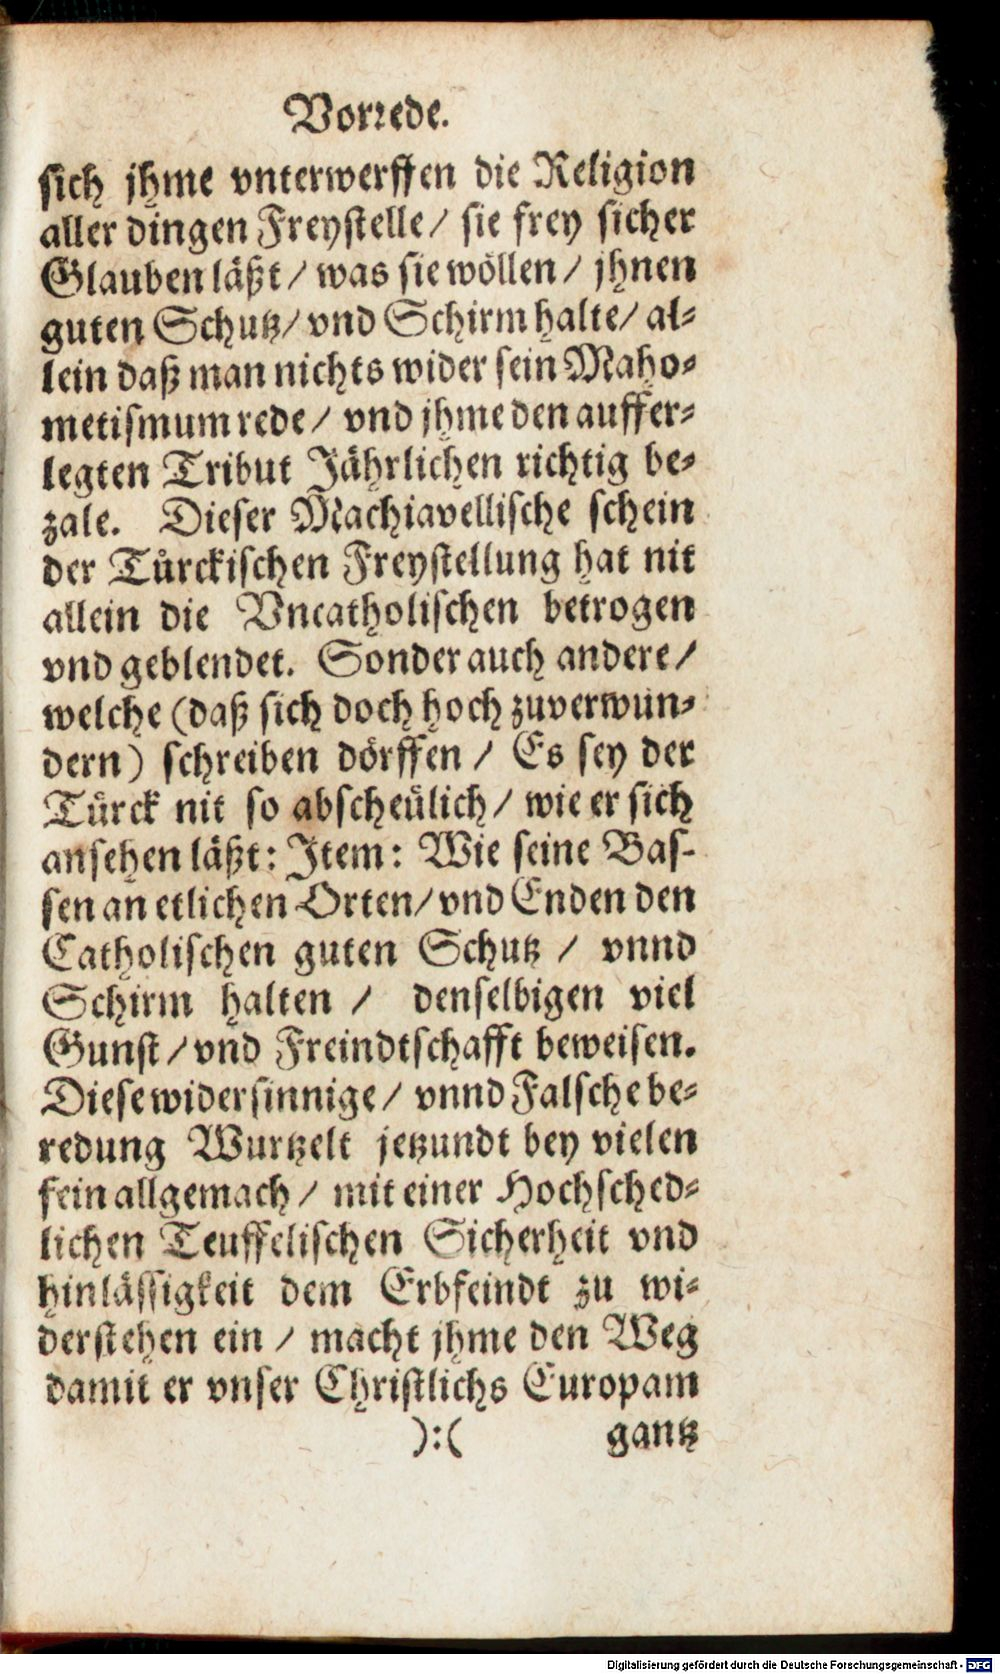 Vorrede.
sich jhme vnterwerffen die Religion
aller dingen Freystelle/ sie frey sicher
Glauben läßt/ was sie wöllen/ jhnen
guten Schutz/ vnd Schirm halte/ al-
lein daß man nichts wider sein Maho-
metismum rede/ vnd jhme den auffer-
legten Tribut Jährlichen richtig be-
zale. Dieser Machiavellische schein
der Türckischen Freystellung hat nit
allein die Vncatholischen betrogen
vnd geblendet. Sonder auch andere/
welche (daß sich doch hoch zuverwun-
dern) schreiben dörffen/ Es sey der
Türck nit so abscheülich/ wie er sich
ansehen läßt: Item: Wie seine Bas-
sen an etlichen Orten/ vnd Enden den
Catholischen guten Schutz/ vnnd
Schirm halten/ denselbigen viel
Gunst/ vnd Freindtschafft beweisen.
Diese widersinnige/ vnnd Falsche be-
redung Wurtzelt jetzundt bey vielen
fein allgemach/ mit einer Hochsched-
lichen Teuffelischen Sicherheit vnd
hinlässigkeit dem Erbfeindt zu wi-
derstehen ein/ macht jhme den Weg
damit er vnser Christlichs Europam
):( gantz
Digitalisierung gefördert durch die Deutsche Forschungsgemeinschaft - DFG